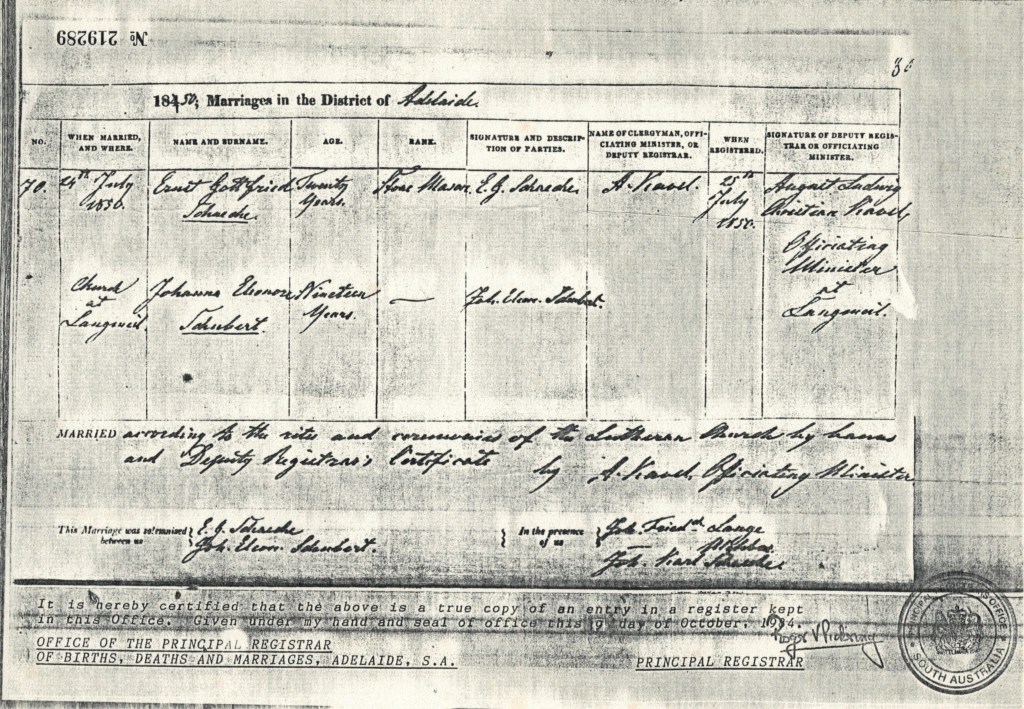 № 219289
30
1850; Marriages in the District of Adelaide.
NO. WHEN MARRIED, AND WHERE. NAME AND SURNAME. AGE. RANK. SIGNATURE AND DESCRIPTION OF PARTIES. NAME OF CLERGYMAN, OFFICIATING MINISTER, OR DEPUTY REGISTRAR. WHEN REGISTERED. SIGNATURE OF DEPUTY REGISTRAR OR OFFICIATING MINISTER.
70. 24th July 1850. Ernst Gottfried Schaeche. Twenty Years. Stone Mason. E. G. Schaeche. A. Kavel. 25th July 1850. August Ludwig Christian Kavel, Officiating Minister at Langmeil.
Church at Langmeil. Johanna Eleonore Schubert. Nineteen Years. — Joh. Eleon. Schubert.
MARRIED according to the rites and ceremonies of the Lutheran Church by banns
and Deputy Registrar's Certificate by A. Kavel, Officiating Minister
This Marriage was solemnised between us } E. G. Schaeche
Joh. Eleon. Schubert.
In the presence of us } Joh. Friedrd Lange
Joh. Karl Schaeche
It is hereby certified that the above is a true copy of an entry in a register kept
in this Office. Given under my hand and seal of office this 9 day of October, 1984.
OFFICE OF THE PRINCIPAL REGISTRAR
OF BIRTHS, DEATHS AND MARRIAGES, ADELAIDE, S.A. PRINCIPAL REGISTRAR
PRINCIPAL OFFICE
SOUTH AUSTRALIA